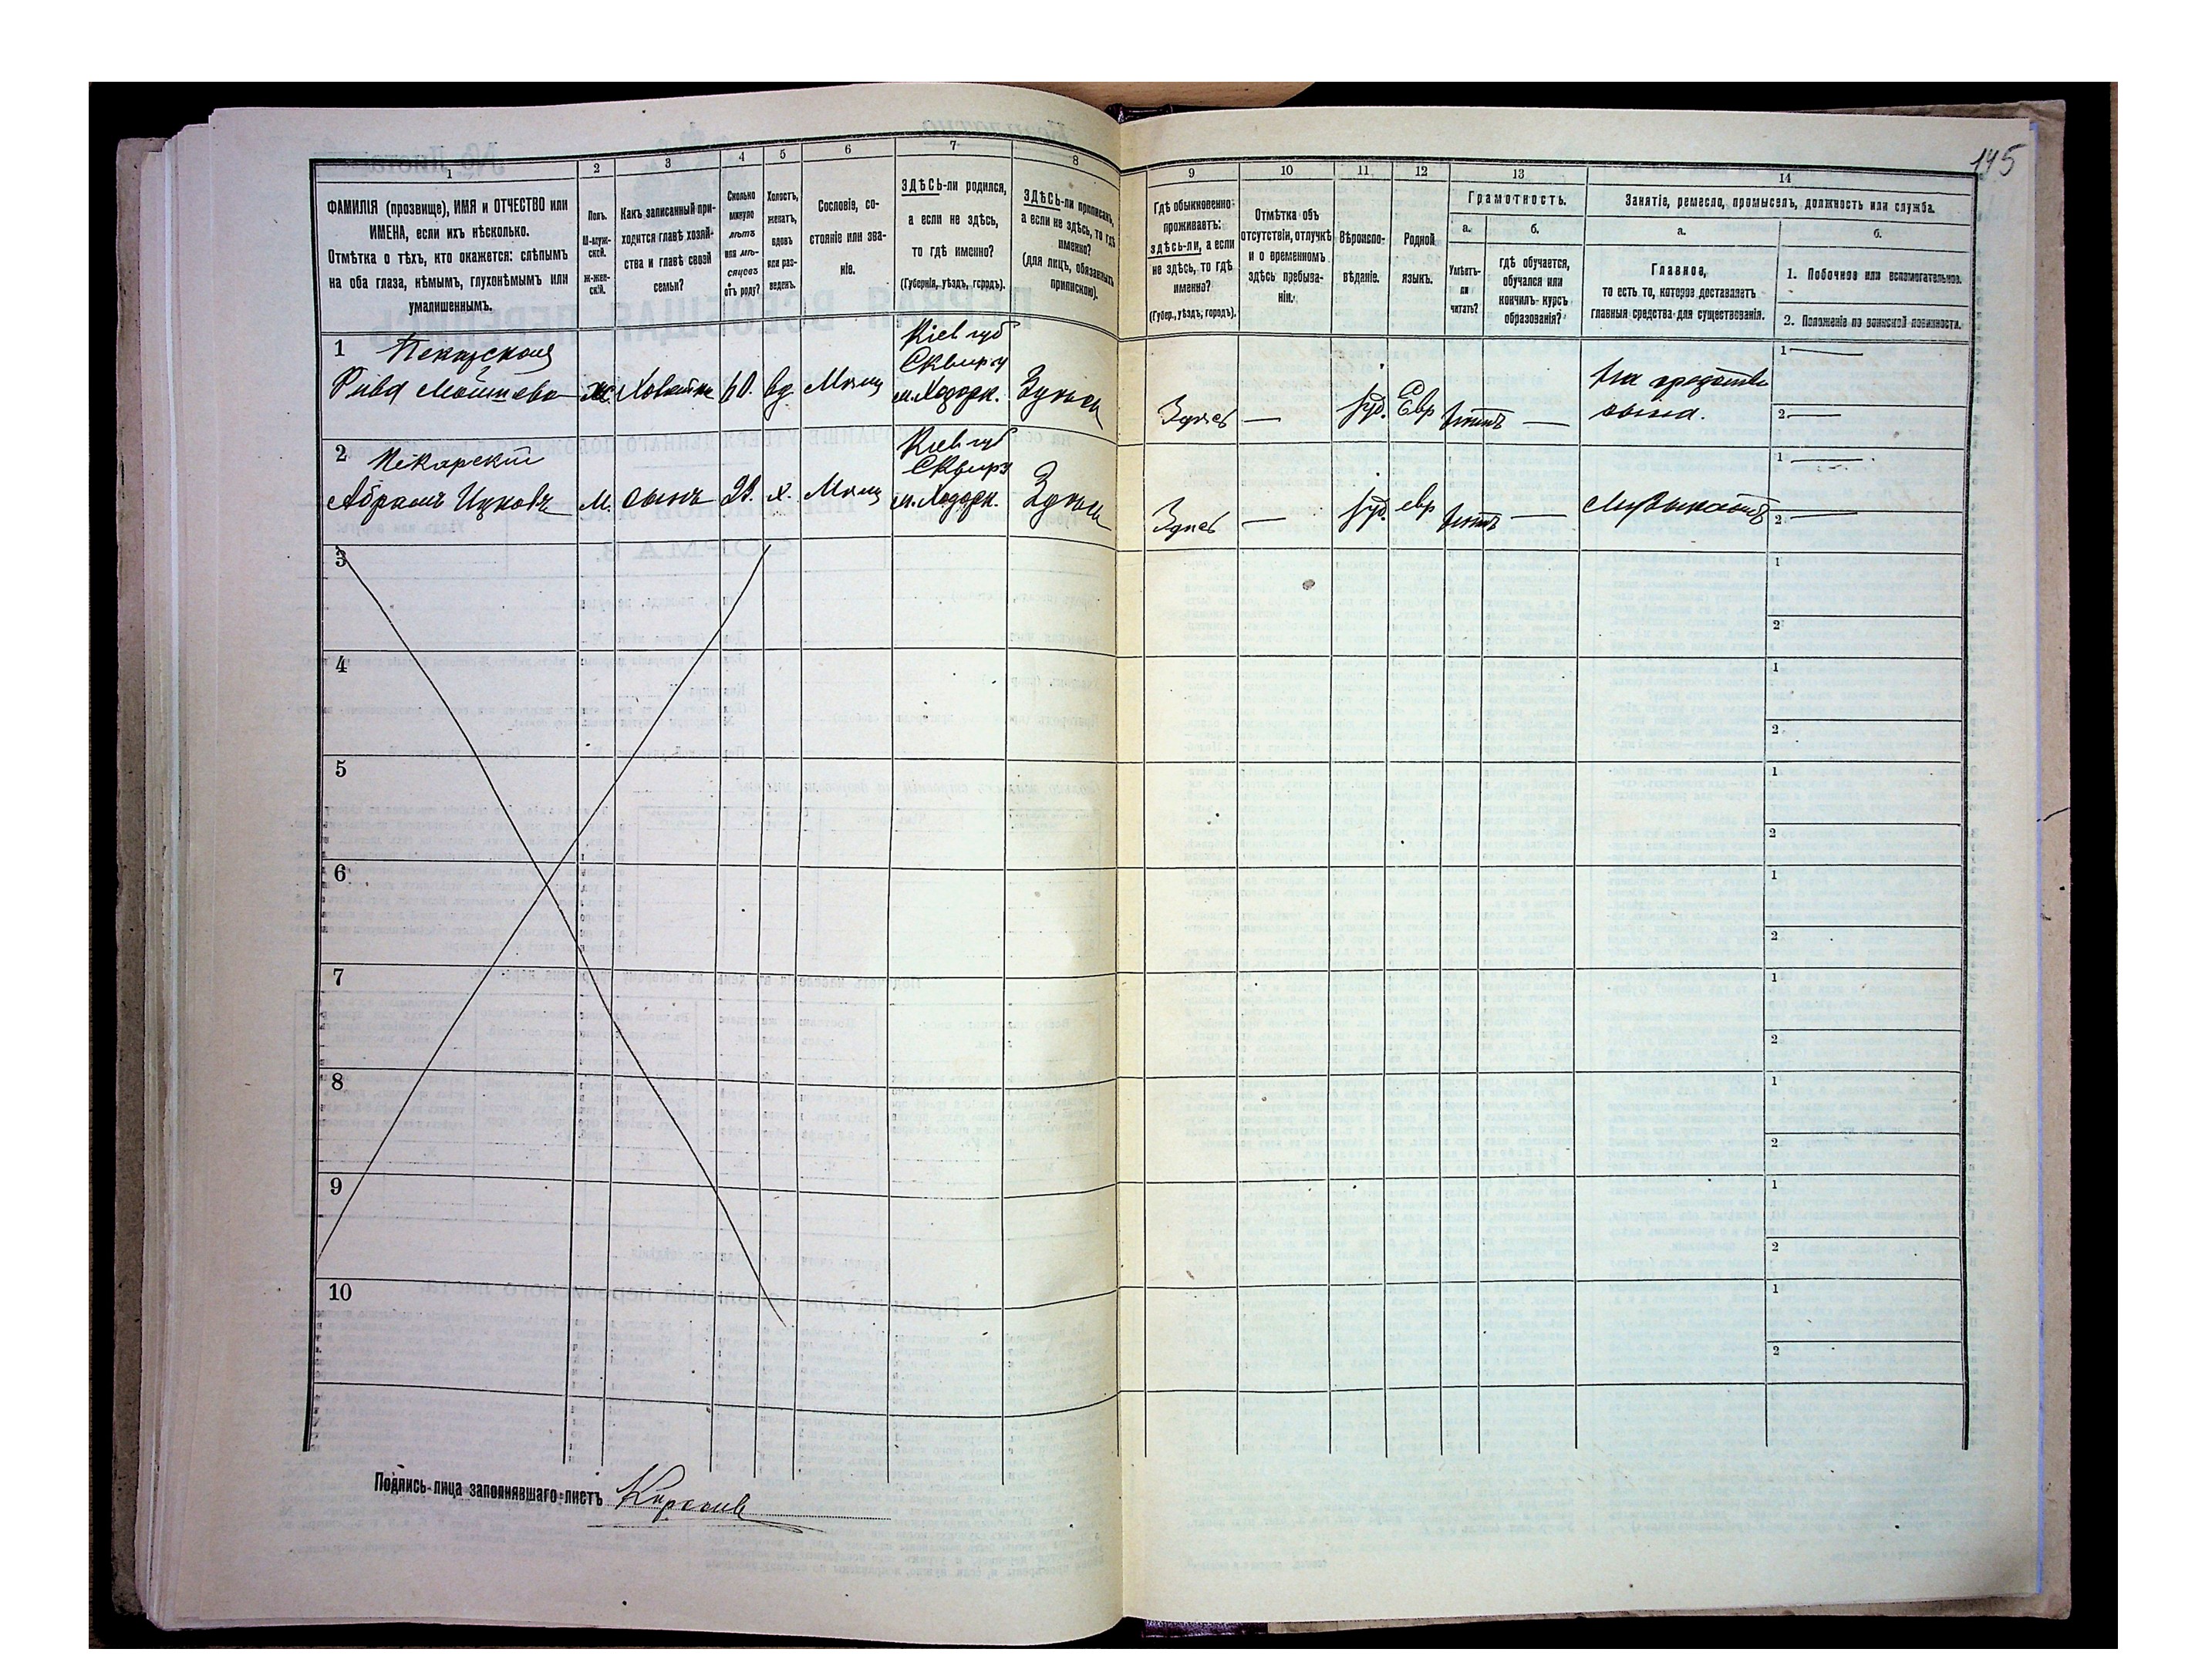 145
1
2
3
4
5
6
7
8
9
10
11
12
13
14
ФАМИЛІЯ (прозвище), ИМЯ и ОТЧЕСТВО или
ИМЕНА, если ихъ нѣсколько.
Отмѣтка о тѣхъ, кто окажется: слѣпымъ
на оба глаза, нѣмымъ, глухонѣмымъ или
умалишеннымъ.
Полъ.
М-муж-
ской.
Ж-жен-
скій.
Какъ записанный при-
ходится главѣ хозяй-
ства и главѣ своей
семьи?
Сколько
минуло
лѣтъ
или мѣ-
сяцевъ
отъ роду?
Холостъ,
женатъ,
вдовъ
или раз-
веденъ.
Сословіе, со-
стояніе или зва-
ніе.
ЗДѢСЬ-ли родился,
а если не здѣсь,
то гдѣ именно?
(Губернія, уѣздъ, городъ).
ЗДѢСЬ-ли приписанъ,
а если не здѣсь, то гдѣ
именно?
(для лицъ, обязанныхъ
припискою).
Гдѣ обыкновенно
проживаетъ:
здѣсь-ли, а если
не здѣсь, то гдѣ
именно?
(Губер., уѣздъ, городъ).
Отмѣтка объ
отсутствіи, отлучкѣ
и о временномъ
здѣсь пребыва-
ніи.
Вѣроиспо-
вѣданіе.
Родной
языкъ.
Грамотность.
а.
б.
Умѣетъ-
ли
читать?
гдѣ обучается,
обучался или
кончилъ курсъ
образованія?
Занятіе, ремесло, промыселъ, должность или служба.
а.
б.
Главное,
то есть то, которое доставляетъ
главныя средства для существованія.
1. Побочное или вспомогательное.
2. Положеніе по воинской повинности.
1 Пекарская
Рива Мойшева ж. Хозяйка 60. вд. Мѣщ
Кіев губ
Сквиру
м. Ходорк.
Здѣсь
Здѣсь — Іуд. Евр —
На средства
сына.
1 —
2 —
2 Пекарскій
Абрамъ Ицковъ М. сынъ 23. х. Мѣщ
Кіев губ
Сквиру
м. Ходорк.
Здѣсь
Здѣсь — Іуд. евр —
Музыкантъ
1 —
2 —
3
1
2
4
1
2
5
1
2
6
1
2
7
1
2
8
1
2
9
1
2
10
1
2
Подпись лица заполнявшаго листъ